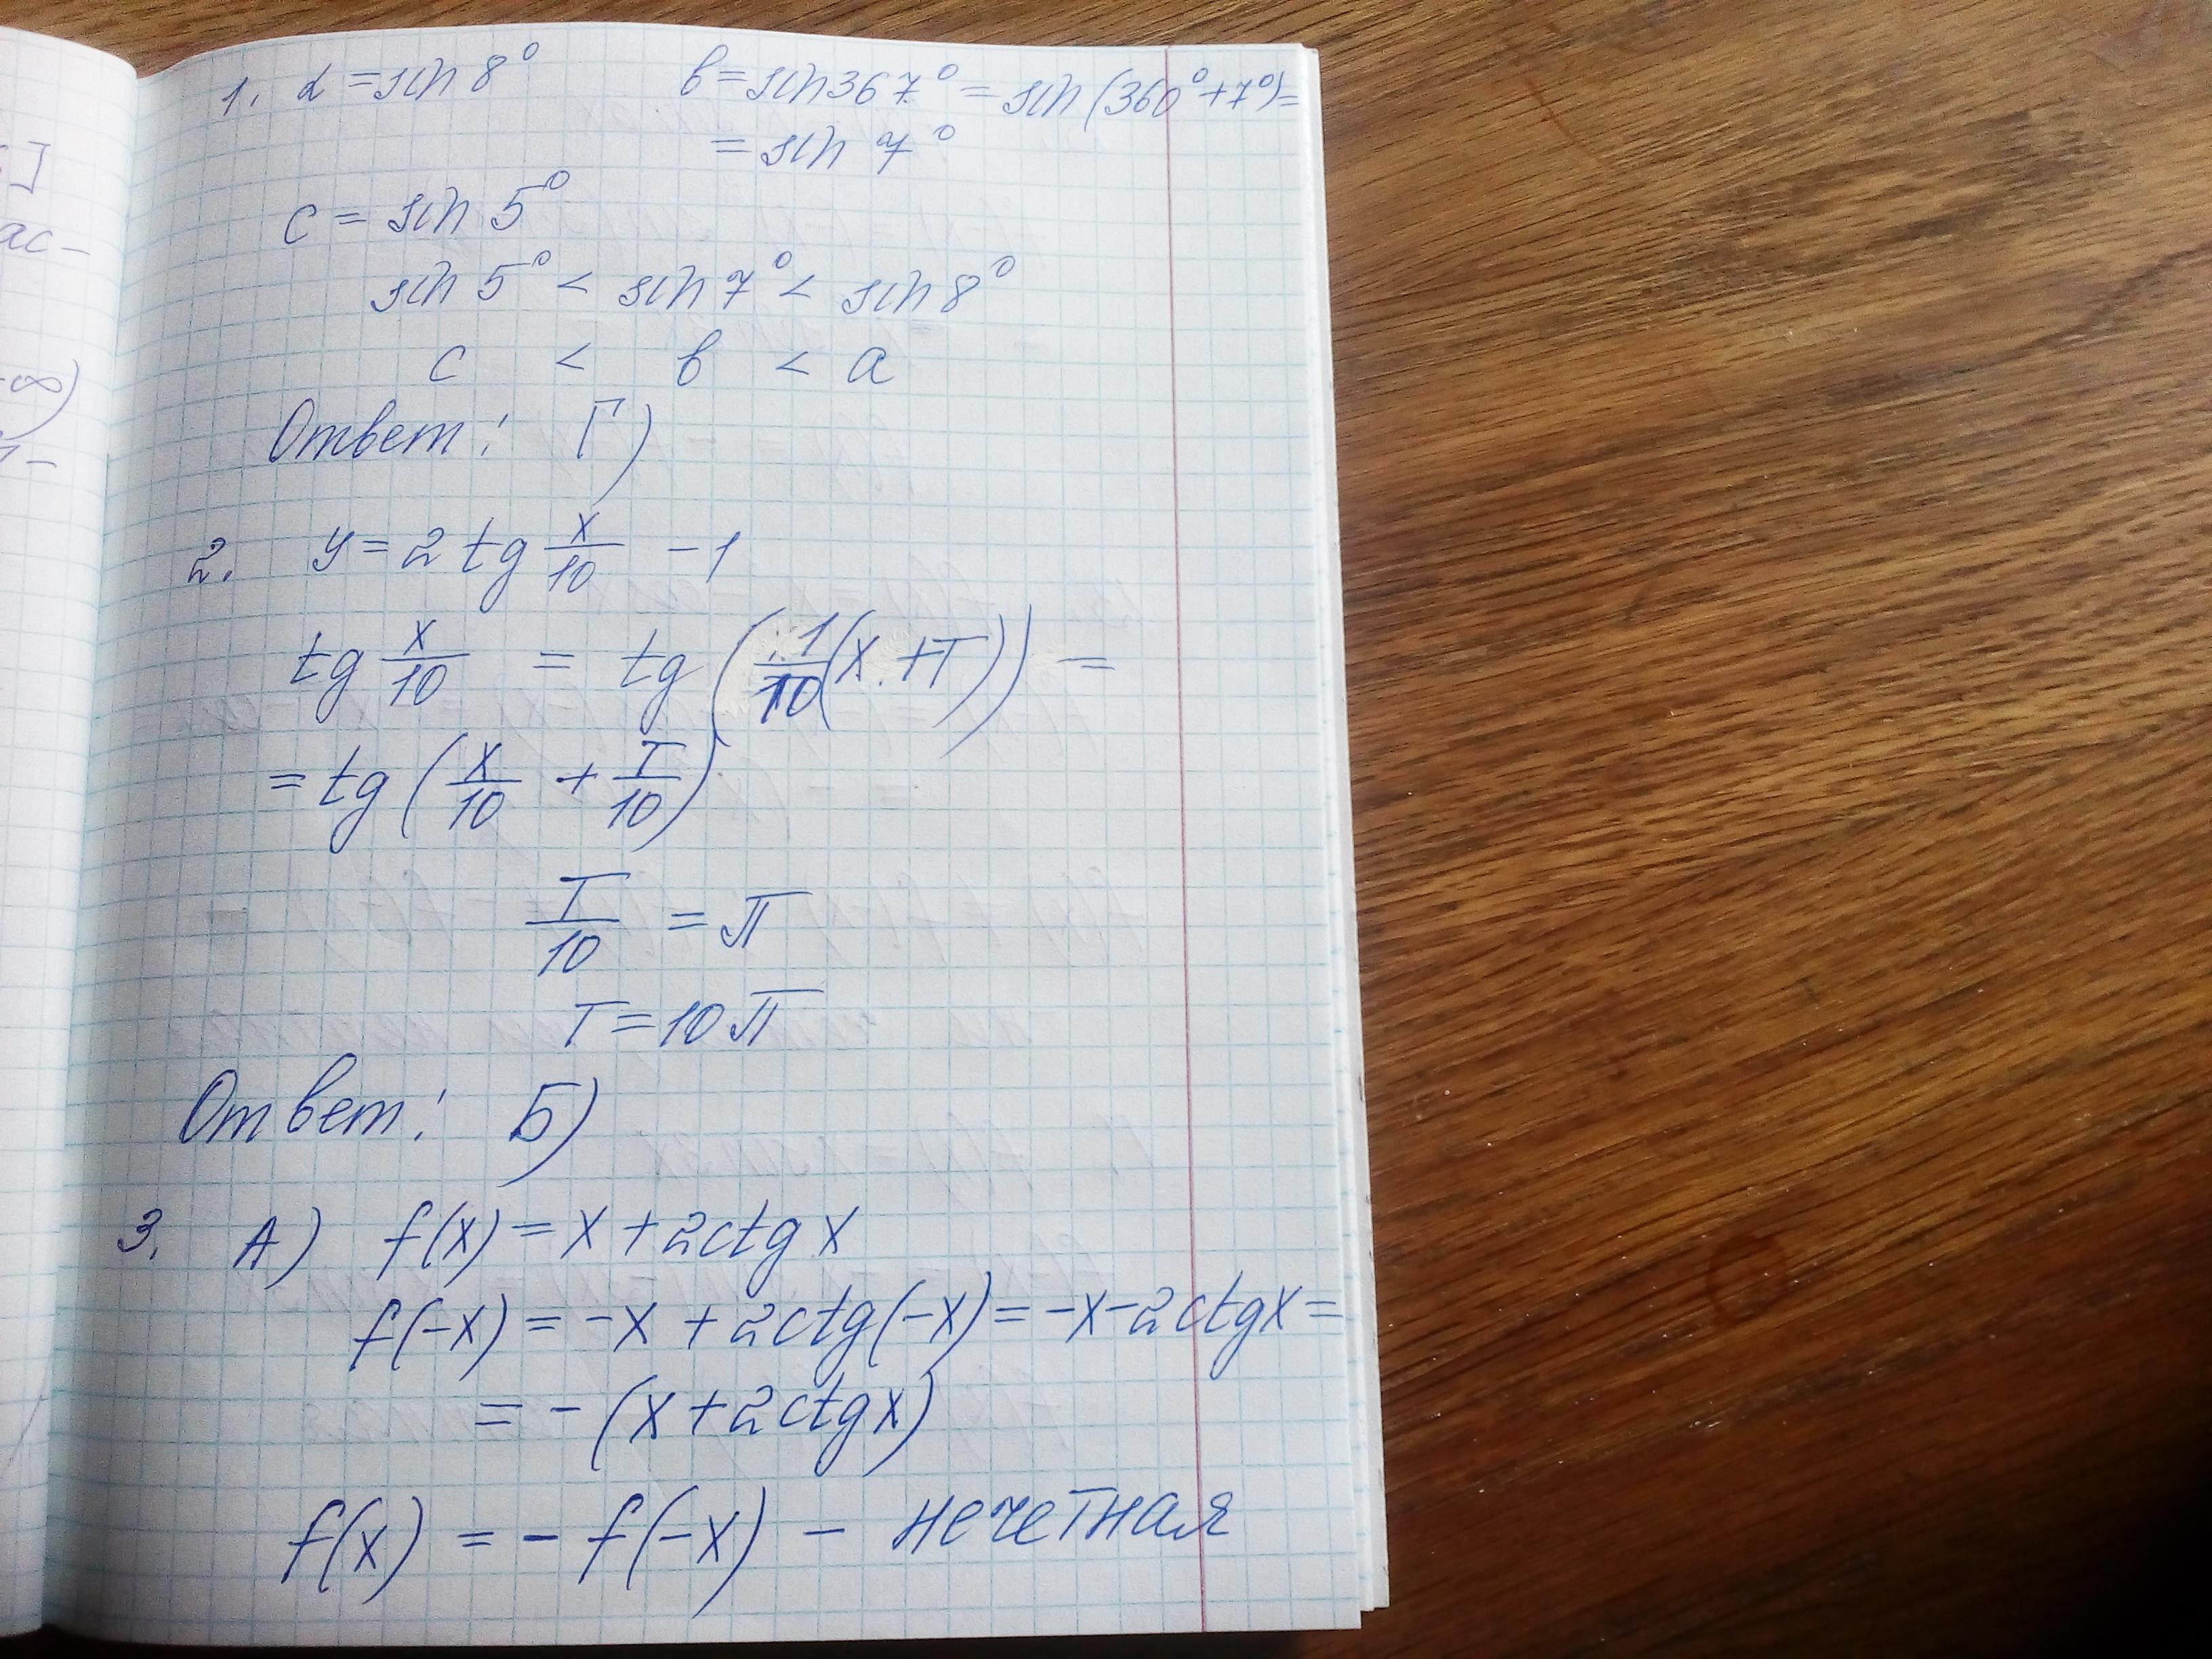 1. d = sin 8° в = sin 367° = sin (360° + 7°) =
= sin 7°
c = sin 5°
sin 5° < sin 7° < sin 8°
c < в < a
Ответ: Г)
2. y = 2 tg x/10 - 1
tg x/10 = tg (1/10 (x + T)) =
= tg (x/10 + T/10)
T/10 = π
T = 10π
Ответ: Б)
3. А) f(x) = x + 2ctg x
f(-x) = -x + 2ctg(-x) = -x - 2ctgx =
= - (x + 2ctg x)
f(x) = - f(-x) - нечетная
ас-
-∞)